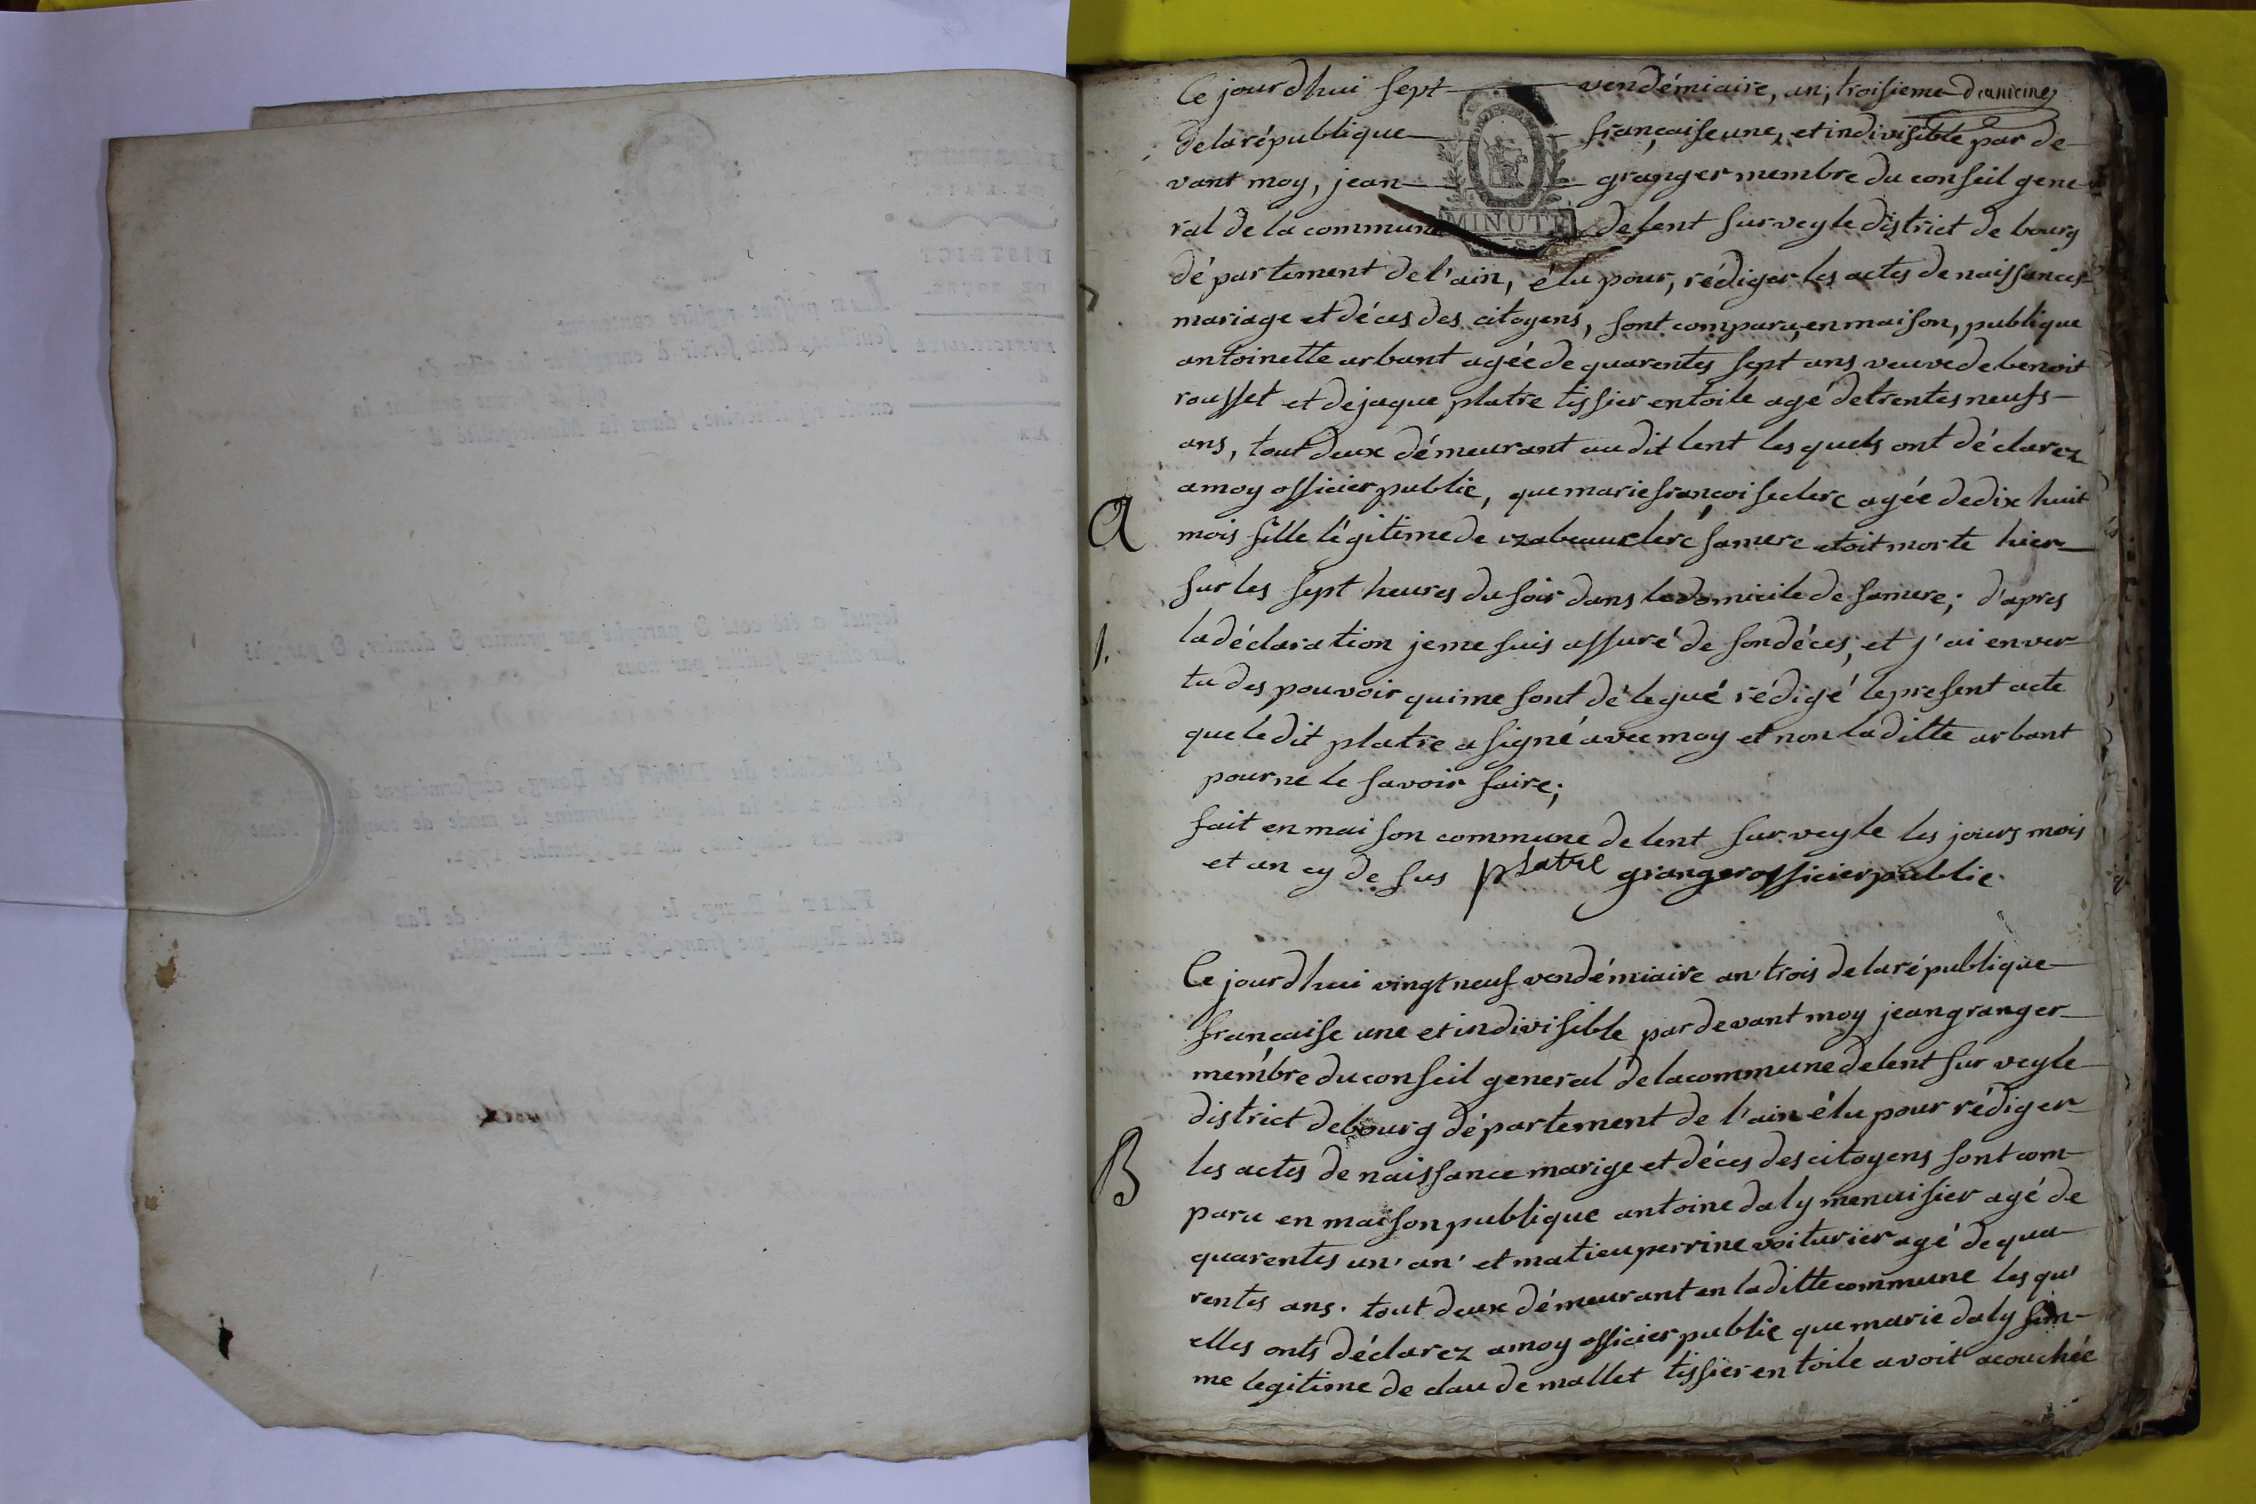 Ce jourdhui sept vendémiaire, an, troisieme
de la république française une, et indivisible par de
vant moy, jean granger membre du conseil gene
MINUTE
ral de la commune de lent sur veyle district de bourg
département de l'ain, élu pour, rédiger les actes de naissances
mariage et déces des citoyens, sont comparu, en maison, publique
antoinette arbant agée de quarentes sept ans veuve de benoit
rousset et de jaque platre tissier en toile agé de trentes neufs
ans, tout deux démeurant au dit lent les quels ont déclarez
a moy officier public, que marie françoise clerc agée de dix huit
A
mois fille légitime de izabeau clerc sa mere etoit morte hier
sur les sept heures du soir dans le domicile de sa mere; d'apres
la déclaration je me suis assuré de son déces, et j'ai en ver
1.
tu des pouvoir qui me sont délegué rédigé le present acte
que le dit platre a signé avec moy et non la ditte arbant
pour ne le savoir faire;
fait en maison commune de lent sur veyle les jours mois
et an cy de sus platre granger officier public
Ce jourdhui vingt neuf vendémiaire an trois de la république
française une et indivisible par devant moy jean granger
membre du conseil general de la commune de lent sur veyle
district de bourg département de l'ain élu pour rédiger
B
les actes de naissance marige et déces des citoyens sont com
paru en maison publique antoine daly menuisier agé de
quarentes un an et matieu perrine voiturier agé de qua
rentes ans. tout deux démeurant en la ditte commune les qu
elles onts déclarez a moy officier public que marie daly fem
me legitime de claude mallet tissier en toile avoit acouchée